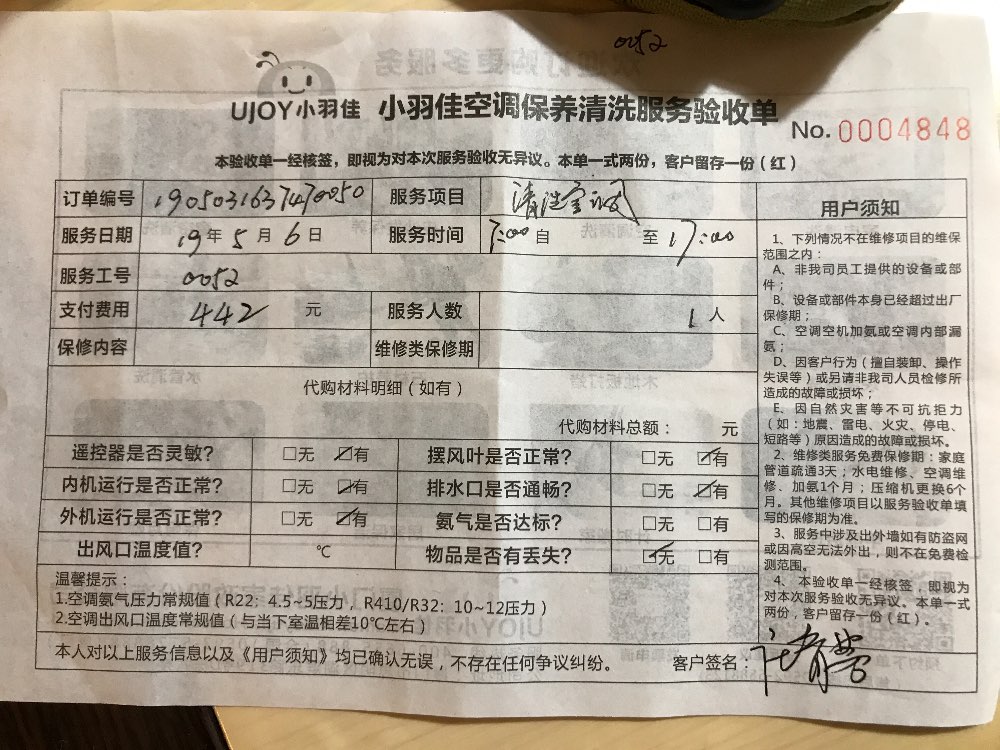 0052
UJOY小羽佳 小羽佳空调保养清洗服务验收单
No. 0004848
本验收单一经核签，即视为对本次服务验收无异议。本单一式两份，客户留存一份（红）
订单编号 1905031637470050 服务项目 清洗空调
服务日期 19年5月6日 服务时间 7:00自 至17:00
服务工号 0052
支付费用 442 元 服务人数 1人
保修内容 维修类保修期
代购材料明细（如有）
代购材料总额： 元
遥控器是否灵敏？ □无 ☑有 摆风叶是否正常？ □无 ☑有
内机运行是否正常？ □无 ☑有 排水口是否通畅？ □无 ☑有
外机运行是否正常？ □无 ☑有 氨气是否达标？ □无 □有
出风口温度值？ ℃ 物品是否有丢失？ ☑无 □有
温馨提示：
1.空调氨气压力常规值（R22：4.5~5压力，R410/R32：10~12压力）
2.空调出风口温度常规值（与当下室温相差10℃左右）
本人对以上服务信息以及《用户须知》均已确认无误，不存在任何争议纠纷。 客户签名：
用户须知
1、下列情况不在维修项目的维保
范围之内：
A、非我司员工提供的设备或部
件；
B、设备或部件本身已经超过出厂
保修期；
C、空调空机加氨或空调内部漏
氨；
D、因客户行为（擅自装卸、操作
失误等）或另请非我司人员检修所
造成的故障或损坏；
E、因自然灾害等不可抗拒力
（如：地震、雷电、火灾、停电、
短路等）原因造成的故障或损坏。
2、维修类服务免费保修期：家庭
管道疏通3天；水电维修、空调维
修、加氨1个月；压缩机更换6个
月。其他维修项目以服务验收单填
写的保修期为准。
3、服务中涉及出外墙如有防盗网
或因高空无法外出，则不在免费检
测范围。
4、本验收单一经核签，即视为
对本次服务验收无异议。本单一式
两份，客户留存一份（红）。